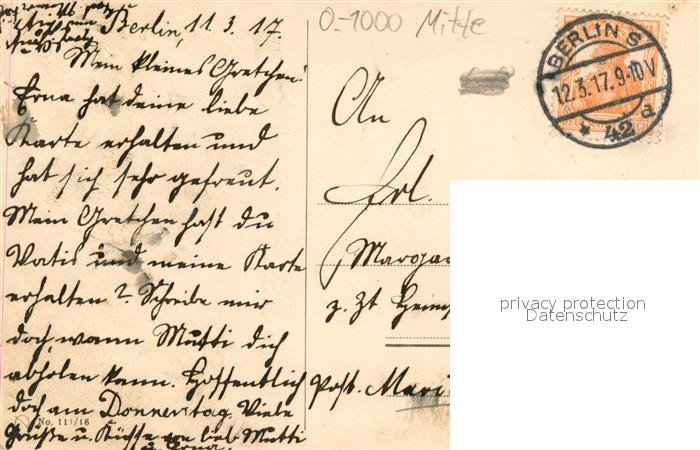 Berlin, 11.3.17.
Mein kleines Gretchen!
Erna hat deine liebe
Karte erhalten und
hat sich sehr gefreut.
Mein Gretchen hast du
Vatis und meine Karte
erhalten? Schreibe mir
doch, wann Mutti dich
abholen kann. Hoffentlich
doch am Donnerstag. Viele
Grüße u. Küsse von lieb. Mutti
u. Erna.
No. 111/16
0.-1000 Mitte
BERLIN S
12.3.17. 9-10 V
* 42 a
An
Frl.
Margar
z. Zt
Post.
privacy protection
Datenschutz